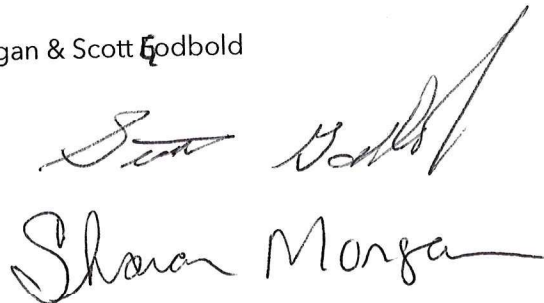 gan & Scott Godbold
Scott Godbold
Sharon Morgan